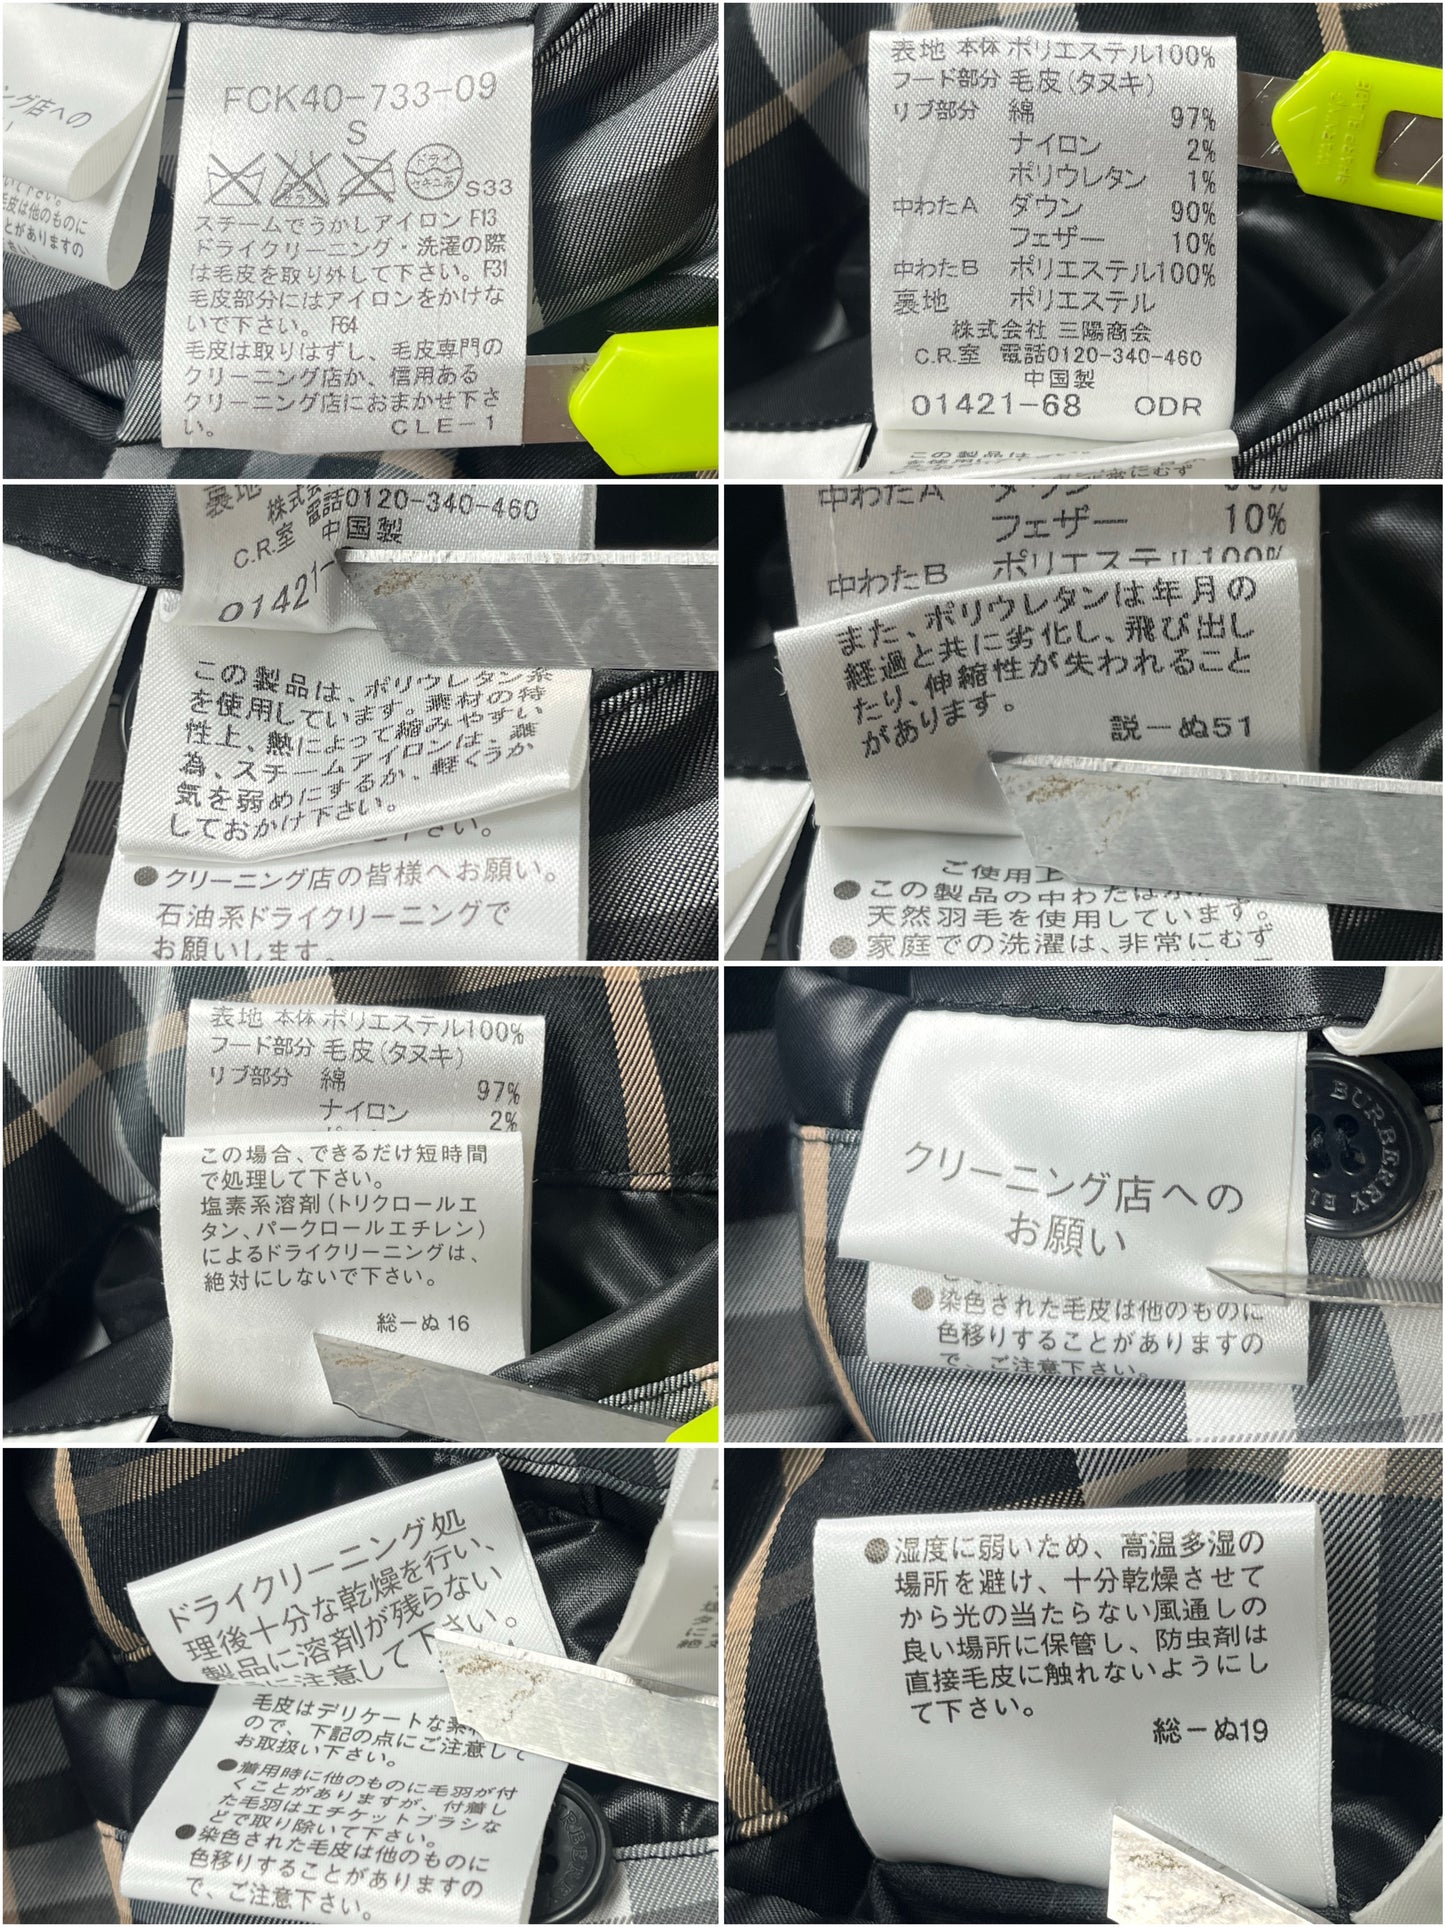 ング店への
FCK40-733-09
S
ドライ
セキユ系
エンソ
サラシ
S33
スチームでうかしアイロン F13
ドライクリーニング・洗濯の際
は毛皮を取り外して下さい。F31
毛皮部分にはアイロンをかけな
いで下さい。 F64
毛皮は取りはずし、毛皮専門の
クリーニング店か、信用ある
クリーニング店におまかせ下さ
い。 CLE-1
毛皮は他のものに
とがありますの
表地 本体 ポリエステル100%
フード部分 毛皮(タヌキ)
リブ部分 綿 97%
ナイロン 2%
ポリウレタン 1%
中わたA ダウン 90%
フェザー 10%
中わたB ポリエステル100%
裏地 ポリエステル
株式会社 三陽商会
C.R.室 電話0120-340-460
中国製
01421-68 ODR
この製品は
WARNING
SHARP BLADE
裏地
株式
C.R.室 電話0120-340-460
中国製
01421-
この製品は、ポリウレタン糸
を使用しています。素材の特
性上、熱によって縮みやすい
為、スチームアイロンは、蒸
気を弱めにするか、軽くうか
しておかけ下さい。
●クリーニング店の皆様へお願い。
石油系ドライクリーニングで
お願いします。
中わたA ダウン
フェザー 10%
中わたB ポリエステル100%
また、ポリウレタンは年月の
経過と共に劣化し、飛び出し
たり、伸縮性が失われること
があります。
説-ぬ51
ご使用上
●この製品の中わたは
天然羽毛を使用しています。
●家庭での洗濯は、非常にむず
表地 本体 ポリエステル100%
フード部分 毛皮(タヌキ)
リブ部分 綿 97%
ナイロン 2%
この場合、できるだけ短時間
で処理して下さい。
塩素系溶剤(トリクロールエ
タン、パークロールエチレン)
によるドライクリーニングは、
絶対にしないで下さい。
総-ぬ 16
クリーニング店への
お願い
●染色された毛皮は他のものに
色移りすることがありますの
で、ご注意下さい。
BURBERRY
ドライクリーニング処
理後十分な乾燥を行い、
製品に溶剤が残らない
に注意して下さい。
毛皮はデリケートな素
ので、下記の点にご注意して
お取扱い下さい。
●着用時に他のものに毛羽が付
くことがありますが、付着し
た毛羽はエチケットブラシな
どで取り除いて下さい。
●染色された毛皮は他のものに
色移りすることがありますの
で、ご注意下さい。
●湿度に弱いため、高温多湿の
場所を避け、十分乾燥させて
から光の当たらない風通しの
良い場所に保管し、防虫剤は
直接毛皮に触れないようにし
て下さい。
総-ぬ19